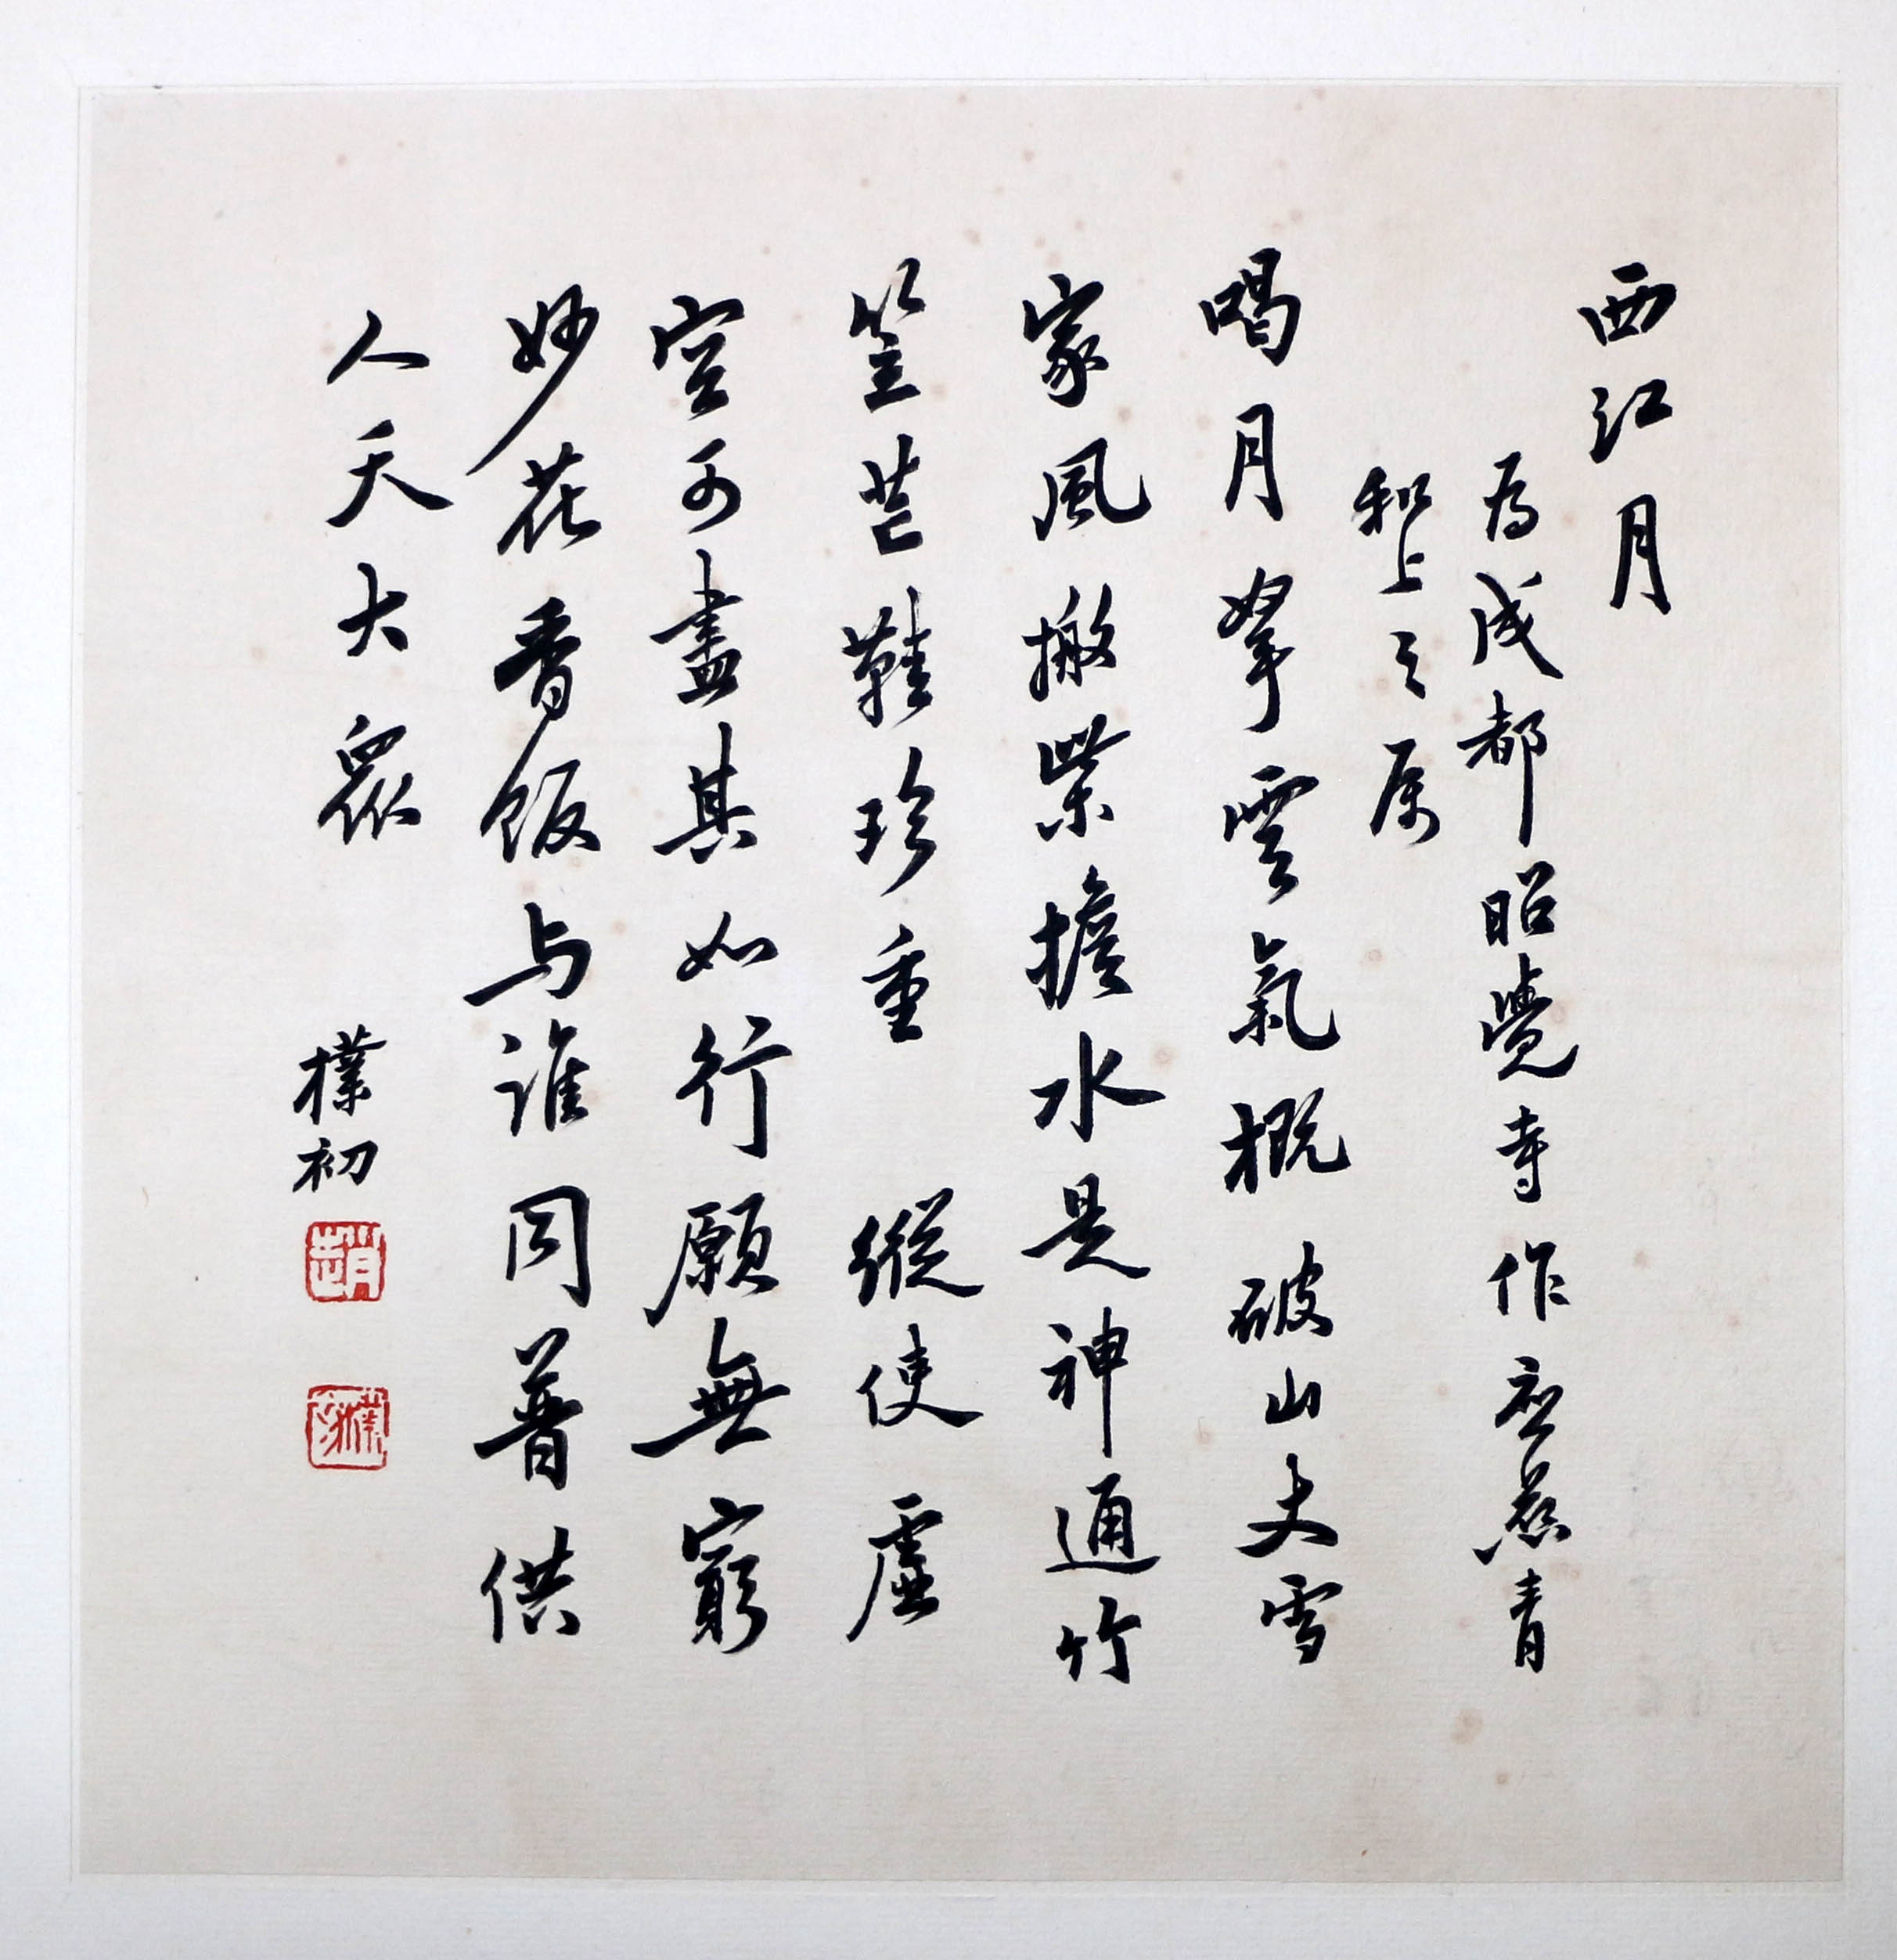 西江月
为成都昭覺寺作应慈青
和上之属
喝月拏雲氣概破山丈雪
家風搬柴擔水是神通竹
笠芒鞋珍重 縱使虚
空可盡其如行願無窮
妙花香飯与誰同普供
人天大眾
樸初
趙
樸初